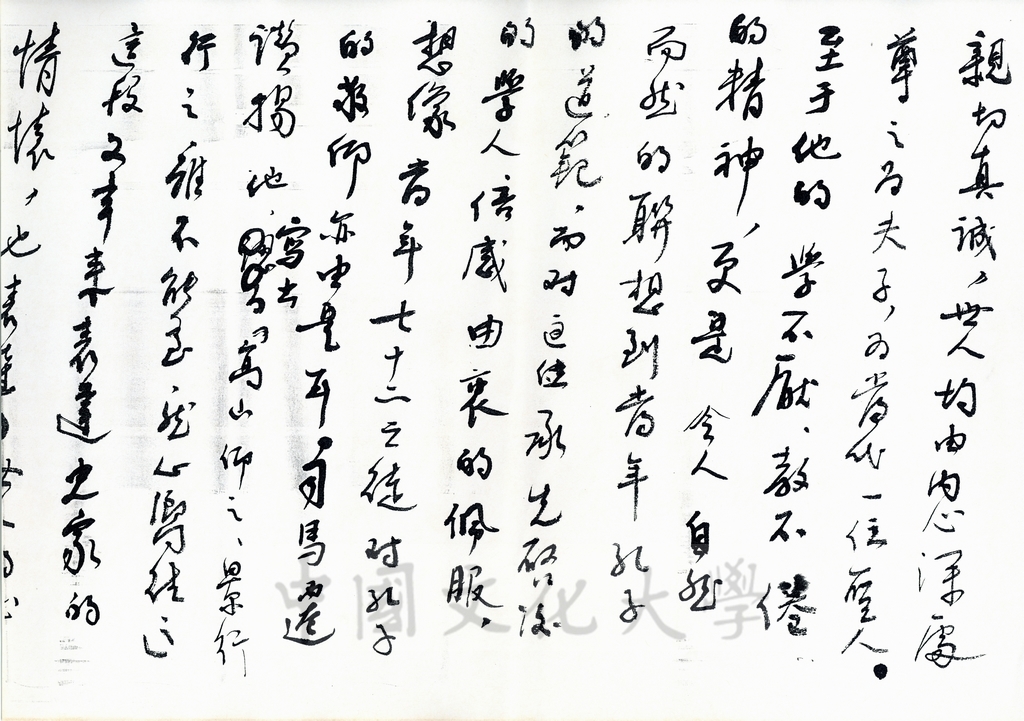 親切真誠,世人均由內心深處
尊之為夫子,為當代一位聖人。
至于他的 學不厭、教不倦
的精神,更是 令人 自然
而然的聯想到當年 孔子
的道範,而对這位承先啓後
的學人倍感由衷的佩服,
想像當年七十二之徒对孔子
的敬仰亦由是耳,司馬遷
讚揚他,寫出「高山仰之、景行
行之、雖不能至,然心嚮往」
這段文章來表達史家的
情懷,也表達
中國文化大學